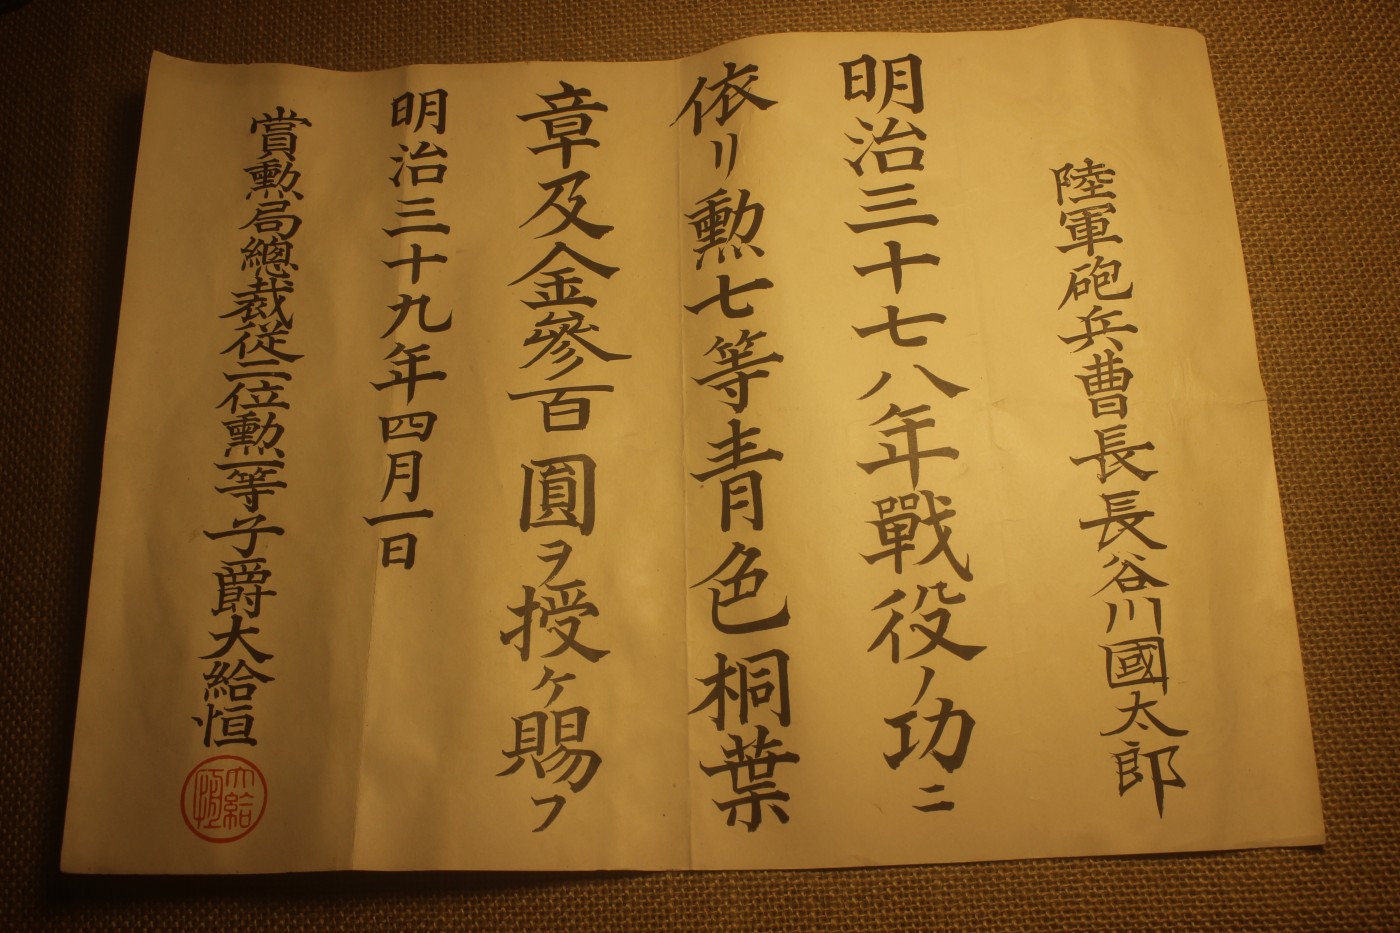 陸軍砲兵曹長長谷川國太郎
明治三十七八年戰役ノ功ニ
依リ勲七等青色桐葉
章及金參百圓ヲ授ケ賜フ
明治三十九年四月一日
賞勲局總裁従二位勲一等子爵大給恒
大給恒